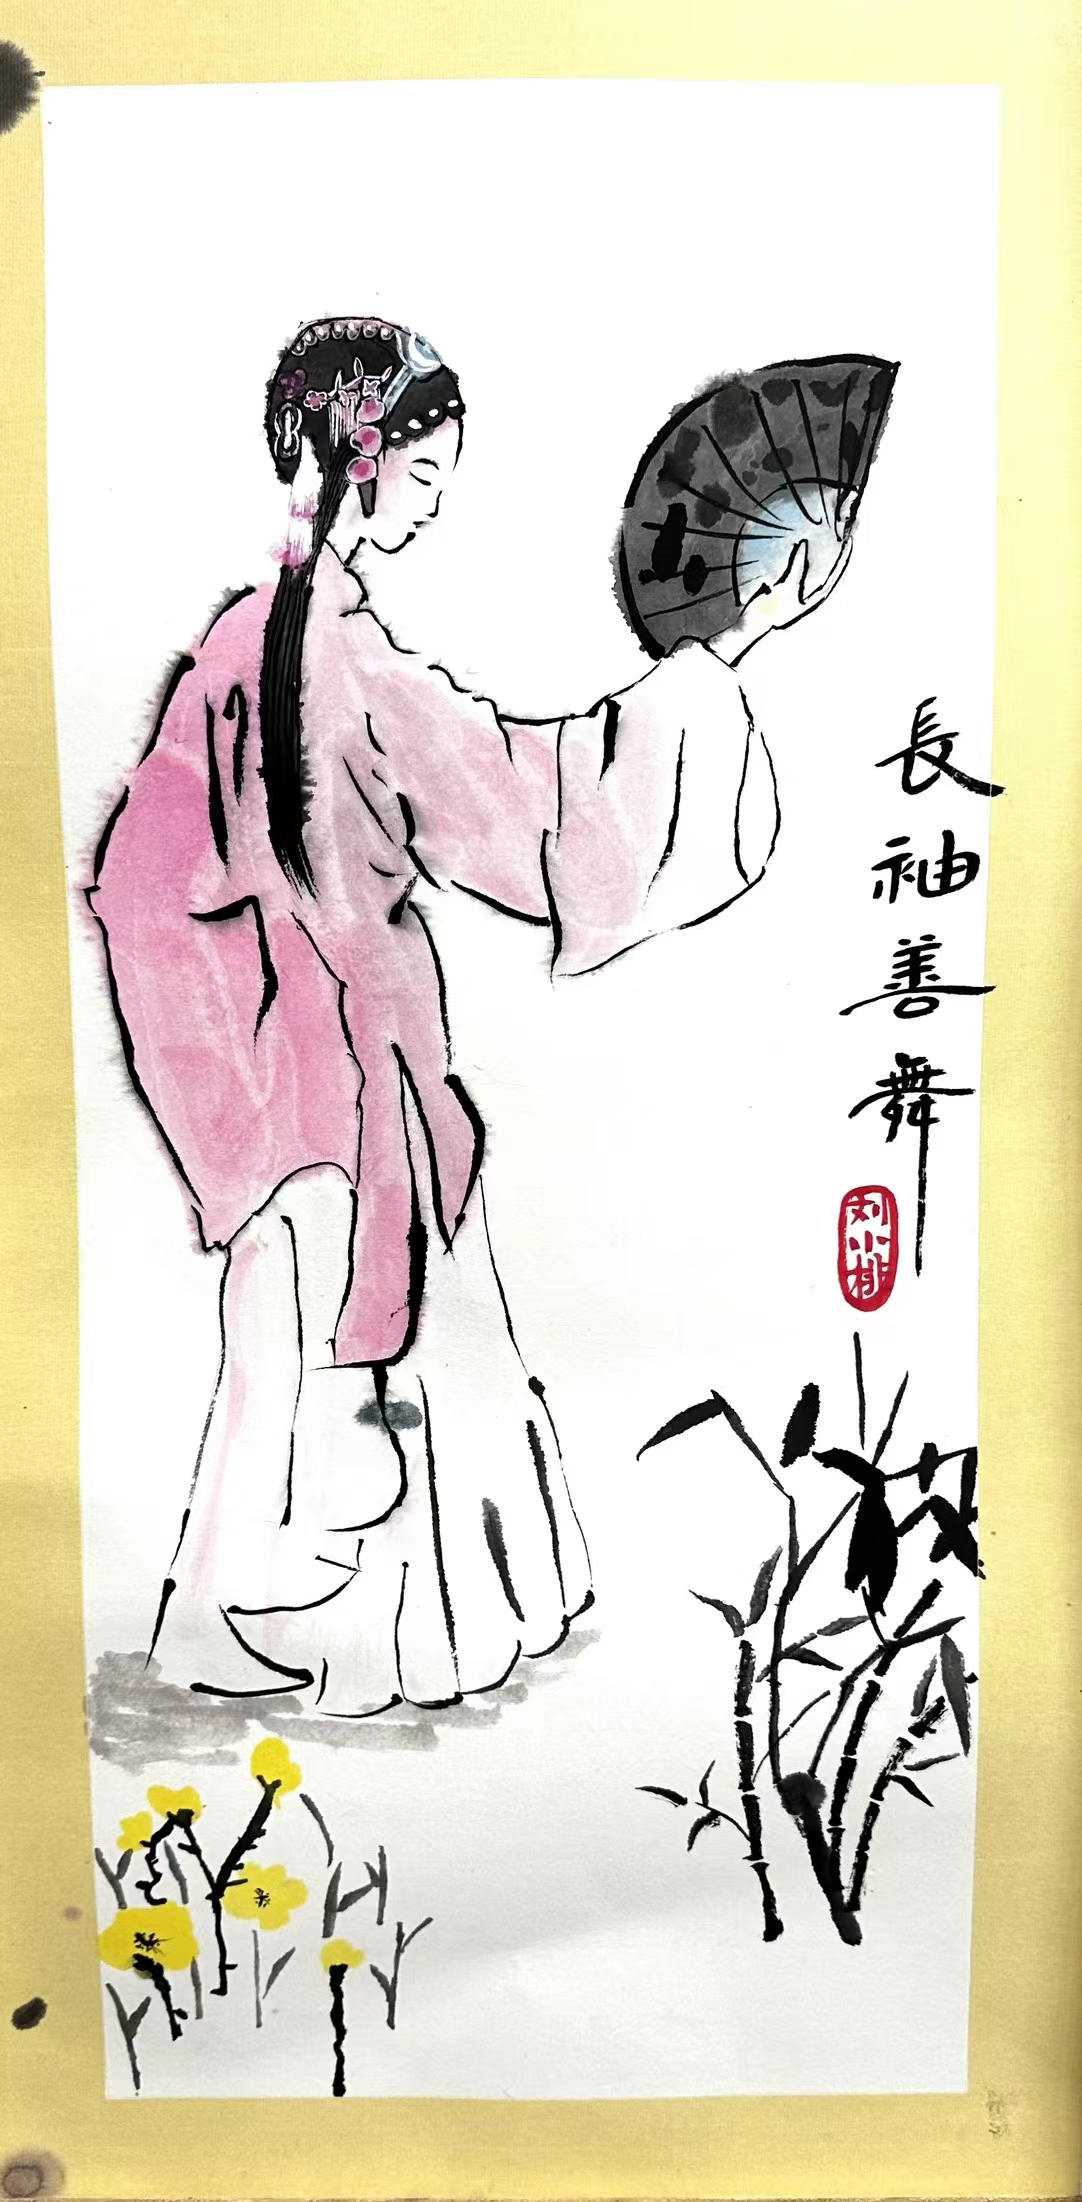 長袖善舞
刘小桃